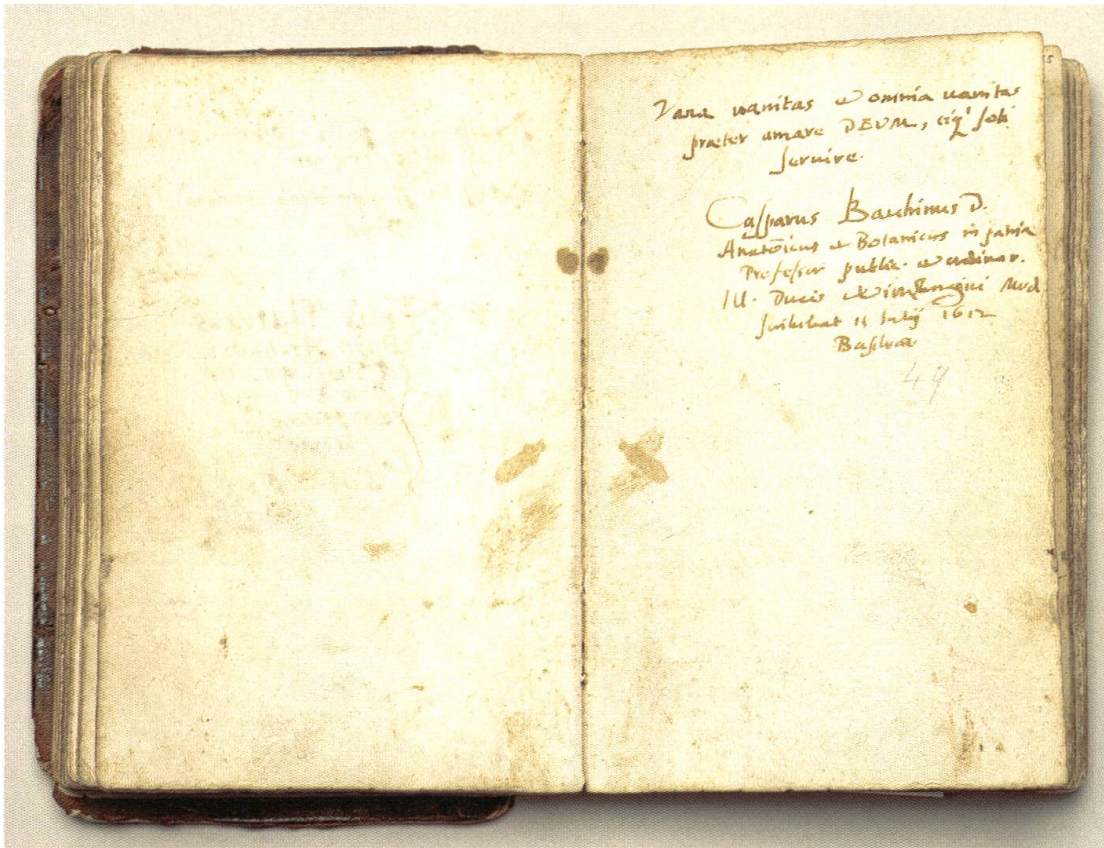 Vana vanitas et omnia vanitas
praeter amare DEUM, eiq' soli
servire.
Casparus Bauhinus D.
Anatomicus et Botanicus in patria
Professor public. et ordinar.
Ill. Ducis Wirtembergici Med
scribebat 11 Julij 1612
Basileae
49